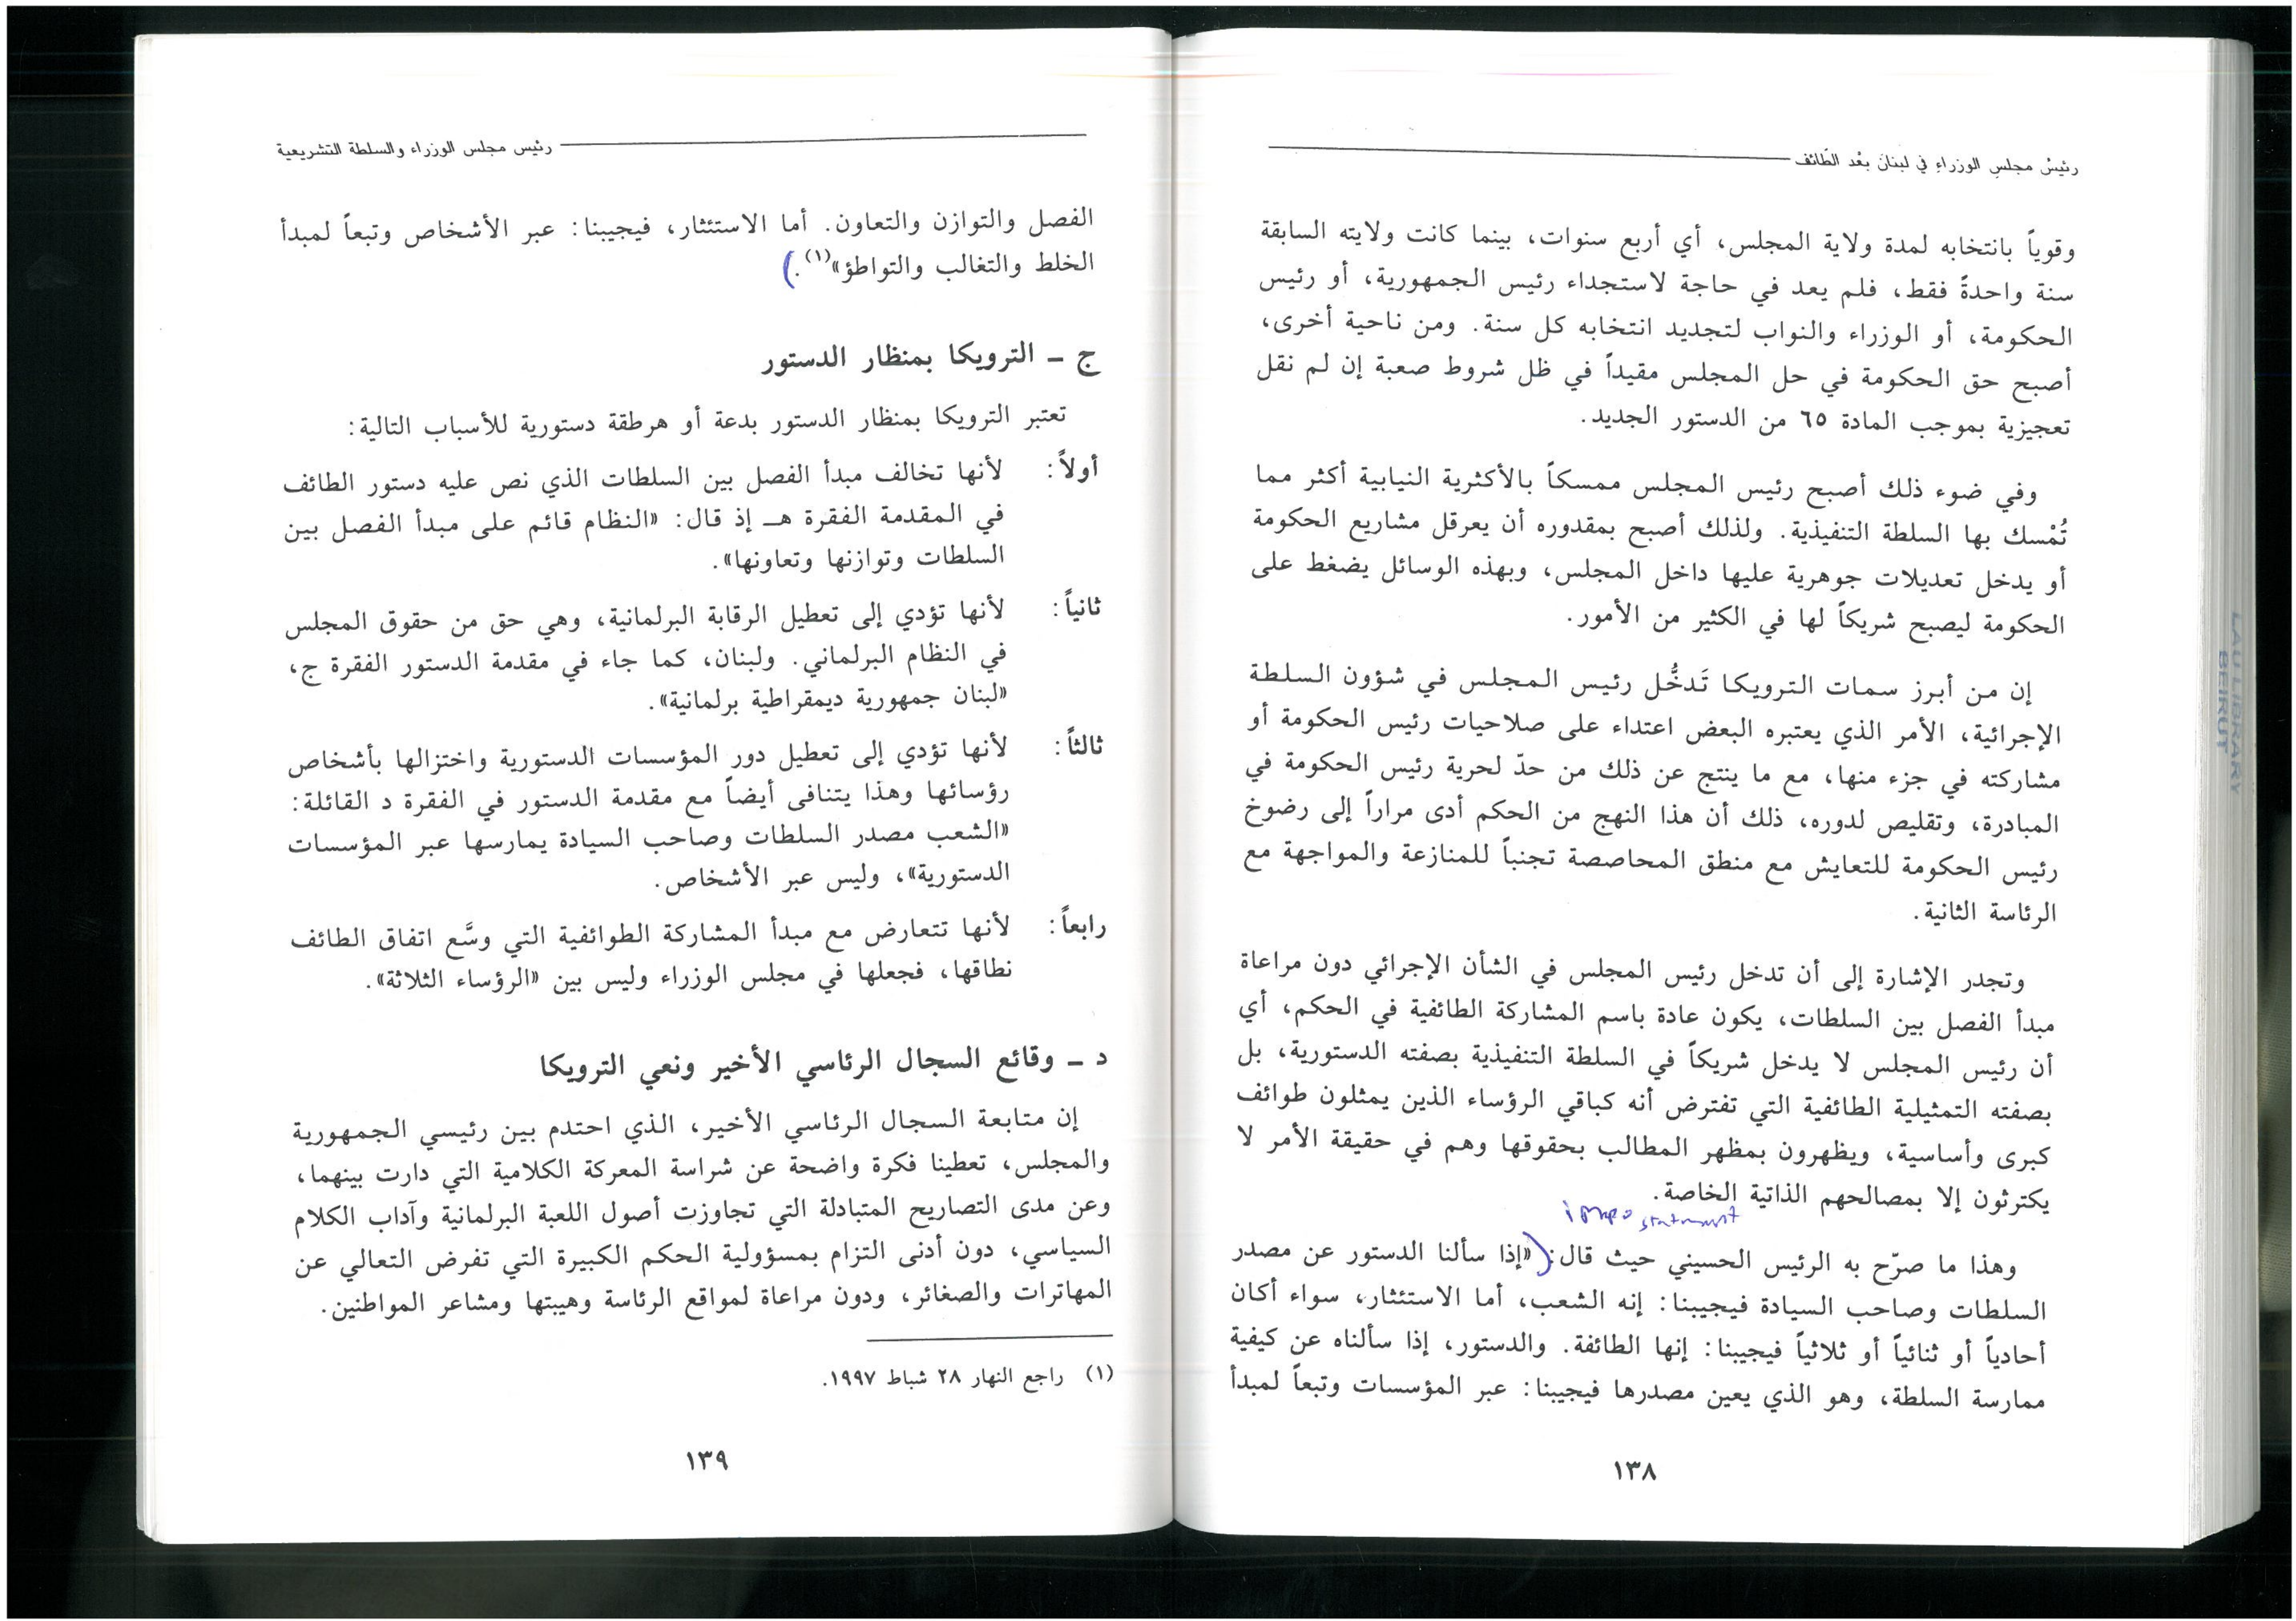 رئيسُ مجلسِ الوزراءِ في لبنانَ بعْد الطّائف
وقوياً بانتخابه لمدة ولاية المجلس، أي أربع سنوات، بينما كانت ولايته السابقة
سنة واحدةً فقط، فلم يعد في حاجة لاستجداء رئيس الجمهورية، أو رئيس
الحكومة، أو الوزراء والنواب لتجديد انتخابه كل سنة. ومن ناحية أخرى،
أصبح حق الحكومة في حل المجلس مقيداً في ظل شروط صعبة إن لم نقل
تعجيزية بموجب المادة ٦٥ من الدستور الجديد.
وفي ضوء ذلك أصبح رئيس المجلس ممسكاً بالأكثرية النيابية أكثر مما
تُمْسك بها السلطة التنفيذية. ولذلك أصبح بمقدوره أن يعرقل مشاريع الحكومة
أو يدخل تعديلات جوهرية عليها داخل المجلس، وبهذه الوسائل يضغط على
الحكومة ليصبح شريكاً لها في الكثير من الأمور.
إن من أبرز سمات الترويكا تَدخُّل رئيس المجلس في شؤون السلطة
الإجرائية، الأمر الذي يعتبره البعض اعتداء على صلاحيات رئيس الحكومة أو
مشاركته في جزء منها، مع ما ينتج عن ذلك من حدّ لحرية رئيس الحكومة في
المبادرة، وتقليص لدوره، ذلك أن هذا النهج من الحكم أدى مراراً إلى رضوخ
رئيس الحكومة للتعايش مع منطق المحاصصة تجنباً للمنازعة والمواجهة مع
الرئاسة الثانية.
وتجدر الإشارة إلى أن تدخل رئيس المجلس في الشأن الإجرائي دون مراعاة
مبدأ الفصل بين السلطات، يكون عادة باسم المشاركة الطائفية في الحكم، أي
أن رئيس المجلس لا يدخل شريكاً في السلطة التنفيذية بصفته الدستورية، بل
بصفته التمثيلية الطائفية التي تفترض أنه كباقي الرؤساء الذين يمثلون طوائف
كبرى وأساسية، ويظهرون بمظهر المطالب بحقوقها وهم في حقيقة الأمر لا
يكترثون إلا بمصالحهم الذاتية الخاصة.
statement
وهذا ما صرّح به الرئيس الحسيني حيث قال: («إذا سألنا الدستور عن مصدر
السلطات وصاحب السيادة فيجيبنا: إنه الشعب، أما الاستئثار، سواء أكان
أحادياً أو ثنائياً أو ثلاثياً فيجيبنا: إنها الطائفة. والدستور، إذا سألناه عن كيفية
ممارسة السلطة، وهو الذي يعين مصدرها فيجيبنا: عبر المؤسسات وتبعاً لمبدأ
١٣٨
رئيس مجلس الوزراء والسلطة التشريعية
الفصل والتوازن والتعاون. أما الاستئثار، فيجيبنا: عبر الأشخاص وتبعاً لمبدأ
الخلط والتغالب والتواطؤ»(١).)
ج ــ الترويكا بمنظار الدستور
تعتبر الترويكا بمنظار الدستور بدعة أو هرطقة دستورية للأسباب التالية:
أولاً: لأنها تخالف مبدأ الفصل بين السلطات الذي نص عليه دستور الطائف
في المقدمة الفقرة هـ إذ قال: «النظام قائم على مبدأ الفصل بين
السلطات وتوازنها وتعاونها».
ثانياً: لأنها تؤدي إلى تعطيل الرقابة البرلمانية، وهي حق من حقوق المجلس
في النظام البرلماني. ولبنان، كما جاء في مقدمة الدستور الفقرة ج،
«لبنان جمهورية ديمقراطية برلمانية».
ثالثاً: لأنها تؤدي إلى تعطيل دور المؤسسات الدستورية واختزالها بأشخاص
رؤسائها وهذا يتنافى أيضاً مع مقدمة الدستور في الفقرة د القائلة:
«الشعب مصدر السلطات وصاحب السيادة يمارسها عبر المؤسسات
الدستورية»، وليس عبر الأشخاص.
رابعاً: لأنها تتعارض مع مبدأ المشاركة الطوائفية التي وسَّع اتفاق الطائف
نطاقها، فجعلها في مجلس الوزراء وليس بين «الرؤساء الثلاثة».
د ــ وقائع السجال الرئاسي الأخير ونعي الترويكا
إن متابعة السجال الرئاسي الأخير، الذي احتدم بين رئيسي الجمهورية
والمجلس، تعطينا فكرة واضحة عن شراسة المعركة الكلامية التي دارت بينهما،
وعن مدى التصاريح المتبادلة التي تجاوزت أصول اللعبة البرلمانية وآداب الكلام
السياسي، دون أدنى التزام بمسؤولية الحكم الكبيرة التي تفرض التعالي عن
المهاترات والصغائر، ودون مراعاة لمواقع الرئاسة وهيبتها ومشاعر المواطنين.
(١) راجع النهار ٢٨ شباط ١٩٩٧.
١٣٩
LAU LIBRARY
BEIRUT